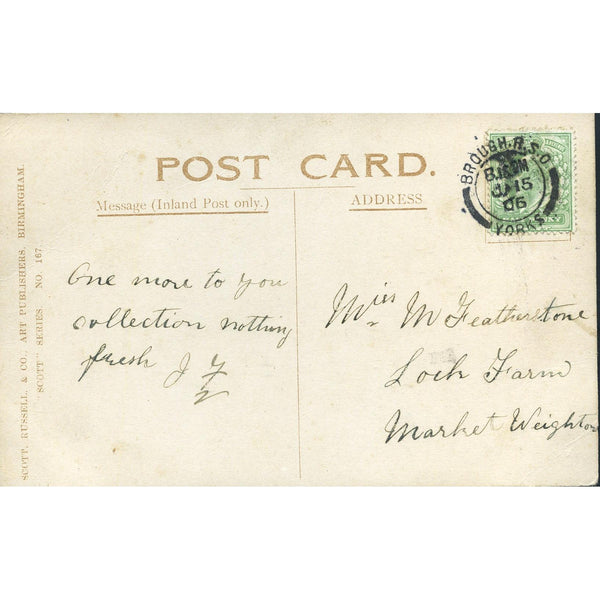 POST CARD.
Message (Inland Post only.)
ADDRESS
BROUGH.R.S.O
JA 15
06
YORKS
One more to you
collection nothing
fresh J F
Miss M Featherstone
Lock Farm
Market Weighton
SCOTT, RUSSELL, & CO. ART PUBLISHERS, BIRMINGHAM.
"SCOTT" SERIES NO. 167